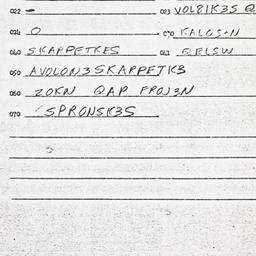 022 - 023 VOL81K3S Q
024 O 030 KALOS+N
040 SKARPETKES 041 QELSW
050 AVOLON3SKARPETK3
060 ZOKN QAP PROJ3N
070 SPRONSK3S